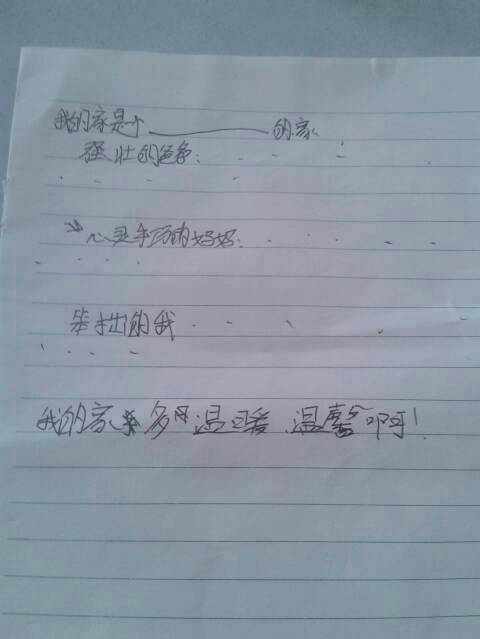 我的家是个______的家
强壮的爸爸:
心灵手巧的妈妈:
笨拙的我
我的家多么温暖.温馨啊!